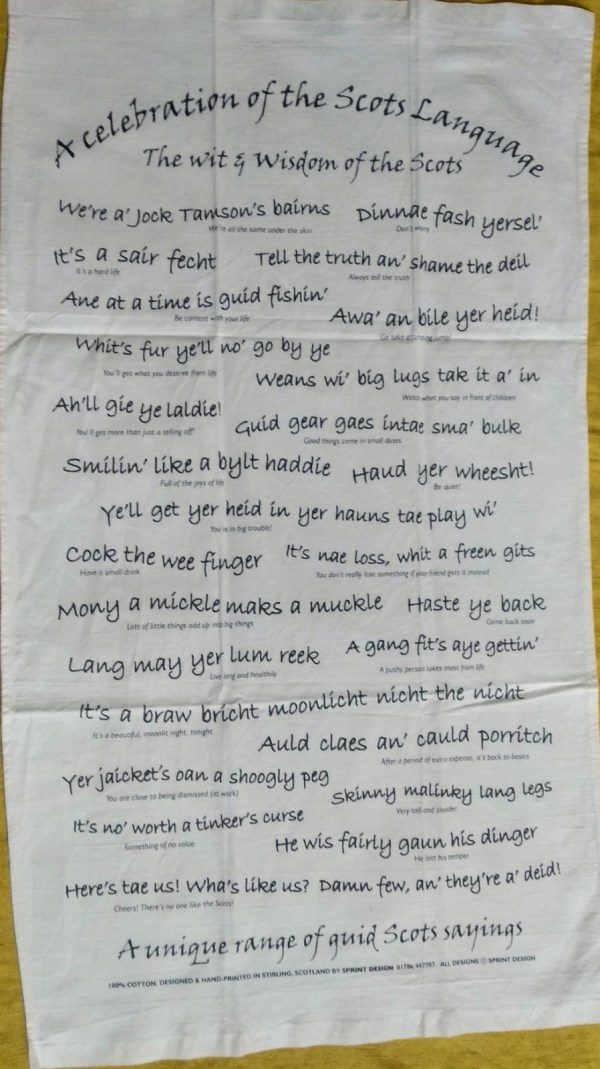 A celebration of the Scots Language
The wit & Wisdom of the Scots
We're a' Jock Tamson's bairns
We're all the same under the skin
Dinnae fash yersel'
Don't worry
It's a sair fecht
It's a hard life
Tell the truth an' shame the deil
Always tell the truth
Ane at a time is guid fishin'
Be content with your life
Awa' an bile yer heid!
Go take a running jump!
Whit's fur ye'll no' go by ye
You'll get what you deserve from life
Weans wi' big lugs tak it a' in
Watch what you say in front of children
Ah'll gie ye laldie!
You'll get more than just a telling off!
Guid gear gaes intae sma' bulk
Good things come in small doses
Smilin' like a bylt haddie
Full of the joys of life
Haud yer wheesht!
Be quiet!
Ye'll get yer heid in yer hauns tae play wi'
You're in big trouble!
Cock the wee finger
Have a small drink
It's nae loss, whit a freen gits
You don't really lose something if your friend gets it instead
Mony a mickle maks a muckle
Lots of little things add up into big things
Haste ye back
Come back soon
Lang may yer lum reek
Live long and healthily
A gang fit's aye gettin'
A pushy person takes most from life
It's a braw bricht moonlicht nicht the nicht
It's a beautiful, moonlit night, tonight
Auld claes an' cauld porritch
After a period of extra expense, it's back to basics
Yer jaicket's oan a shoogly peg
You are close to being dismissed (at work)
Skinny malinky lang legs
Very tall and slender
It's no' worth a tinker's curse
Something of no value
He wis fairly gaun his dinger
He lost his temper
Here's tae us! Wha's like us? Damn few, an' they're a' deid!
Cheers! There's no one like the Scots!
A unique range of guid Scots sayings
100% COTTON. DESIGNED & HAND-PRINTED IN STIRLING, SCOTLAND BY SPRINT DESIGN 01786 447707. ALL DESIGNS © SPRINT DESIGN